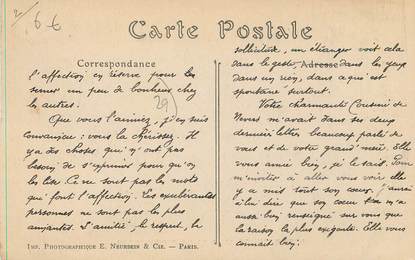 2/
6 €
Carte Postale
Correspondance
l'affection en réserve pour les
semer un peu de bonheur chez
les autres. 29)
Que vous l'aimez, j'en suis
convaincue : vous la chérissez. Il
y a des choses qui n'ont pas
besoin de s'exprimer pour qu'on
les lise. Ce ne sont pas les mots
que font l'affection. Les exubérantes
personnes ne sont pas les plus
aimantes. L'amitié, le respect, la
IMP. PHOTOGRAPHIQUE E. NEURDEIN & CIE. — PARIS.
sollicitude, un étranger voit cela
dans le geste, Adresse dans les yeux
dans un rien, dans ce qui est
spontané surtout.
Votre charmante Cousine de
Nevers m'avait dans ses deux
dernières lettres beaucoup parlé de
vous et de votre grand'mère. Elle
vous aime bien, je le sais. Pour
m'inviter à aller vous voir elle
y a mis tout son cœur. J'aurai
à lui dire que son cœur m'a
aussi bien renseigné sur vous que
la raison la plus exigeante. Elle vous
connait bien.